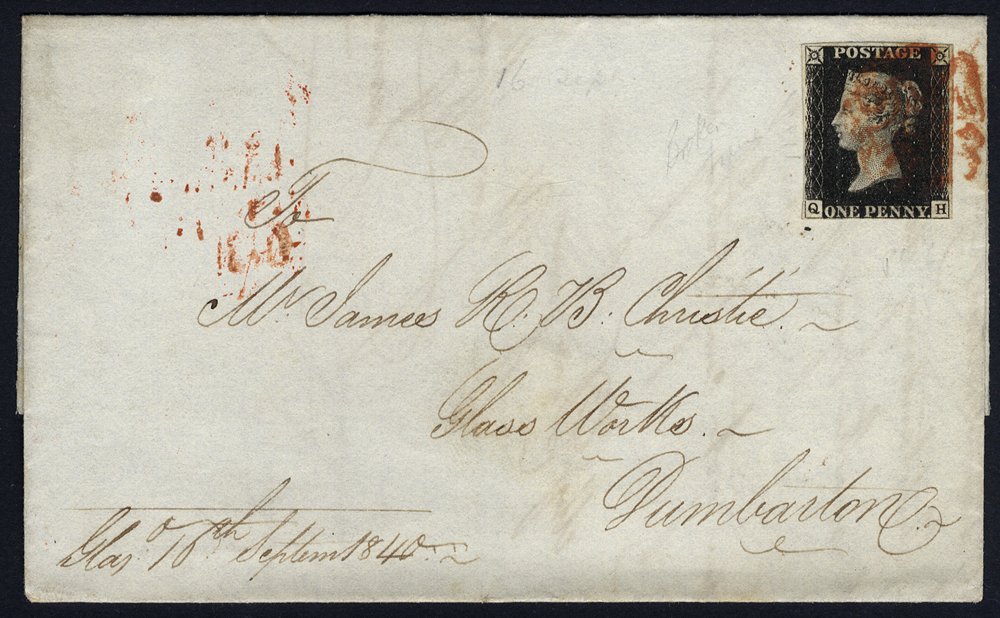 POSTAGE
Q H
ONE PENNY
16
To
Mr James R. B. Christie.
Glass Works.
Dumbarton.
Glaso 16th Septem 1840